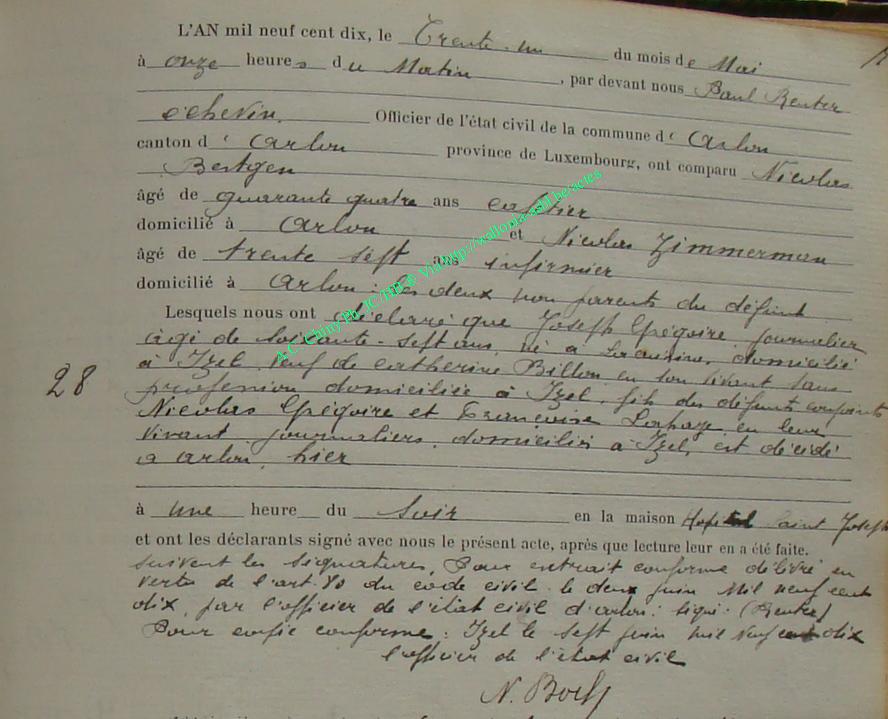 L'AN mil neuf cent dix, le Trente-un du mois de Mai
à onze heures du Matin, par devant nous Paul Reuter
échevin Officier de l'état civil de la commune d' Arlon
canton d' Arlon province de Luxembourg, ont comparu Nicolas
Bertgen
âgé de quarante quatre ans
domicilié à Arlon et Nicolas Zimmerman
âgé de trente sept ans infirmier
domicilié à Arlon : les deux non parents du défunt
Lesquels nous ont déclaré que Joseph Grégoire, journalier
âgé de soixante-sept ans, né à domicilié
à Izel, veuf de Catherine Billon en son vivant sans
profession domiciliée à Izel, fils des défunts conjoints
Nicolas Grégoire et Françoise en leur
vivant journaliers, domiciliés à Izel, est décédé
à Arlon, hier
28
à une heure du Soir en la maison Hopital Saint Joseph
et ont les déclarants signé avec nous le présent acte, après que lecture leur en a été faite.
suivent les signatures, Pour extrait conforme délivré en
vertu de l'art. 80 du code civil le deux juin Mil neuf cent
dix, par l'officier de l'état civil d'arlon : signé : (Reuter)
Pour copie conforme : Izel le sept juin mil neuf cent dix
l'officier de l'état civil
A.C. Chiny Ph. JC/HB ® Via http://wallonia-asbl.be/actes